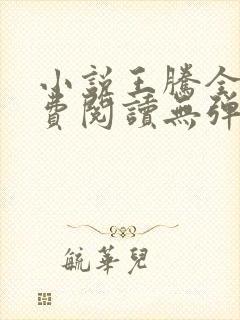 小說王騰全
費閱讀無彈
毓華兒